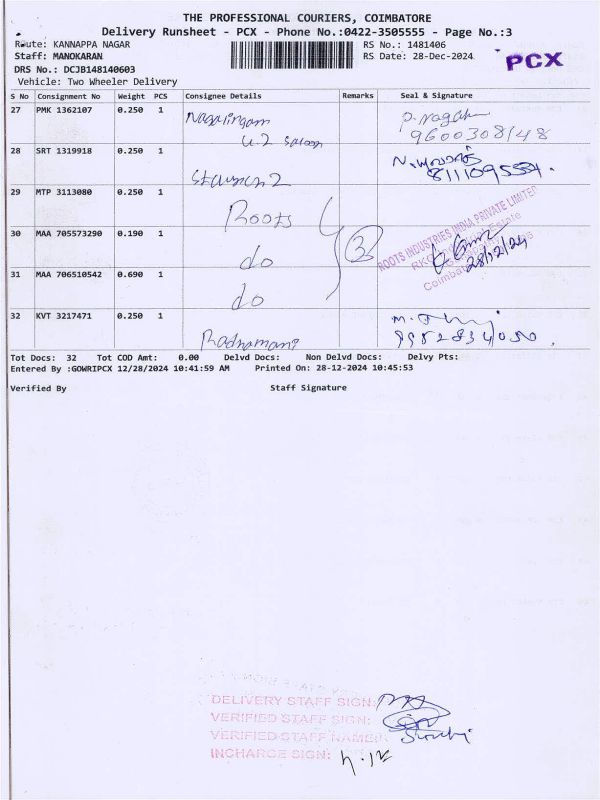 THE PROFESSIONAL COURIERS, COIMBATORE
Delivery Runsheet - PCX - Phone No.:0422-3505555 - Page No.:3
Route: KANNAPPA NAGAR RS No.: 1481406
Staff: MANOKARAN RS Date: 28-Dec-2024
PCX
DRS No.: DCJB148140603
Vehicle: Two Wheeler Delivery
S No Consignment No Weight PCS Consignee Details Remarks Seal & Signature
27 PMK 1362107 0.250 1 Nagalingam P. Nagal
9600308148
28 SRT 1319918 0.250 1
8111095554.
29 MTP 3113080 0.250 1 Roots
30 MAA 705573290 0.190 1 do 3
ROOTS INDUSTRIES INDIA PRIVATE LIMITED
28/12/24
31 MAA 706510542 0.690 1 do
32 KVT 3217471 0.250 1 Radhamani
Tot Docs: 32 Tot COD Amt: 0.00 Delvd Docs: Non Delvd Docs: Delvy Pts:
Entered By :GOWRIPCX 12/28/2024 10:41:59 AM Printed On: 28-12-2024 10:45:53
Verified By Staff Signature
DELIVERY STAFF SIGN:
VERIFIED STAFF SIGN:
VERIFIED STAFF NAME:
INCHARGE SIGN: